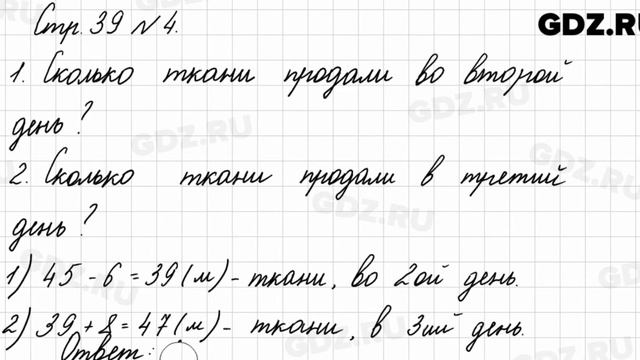 Стр. 39 №4.
GDZ.RU
1. Сколько ткани продали во второй
день?
GDZ.RU
GDZ.RU
2. Сколько ткани продали в третий
день?
GDZ.RU
GDZ.RU
1) 45 - 6 = 39 (м) - ткани, во 2ой день.
GDZ.RU
2) 39 + 8 = 47 (м) - ткани, в 3ий день.
Ответ: